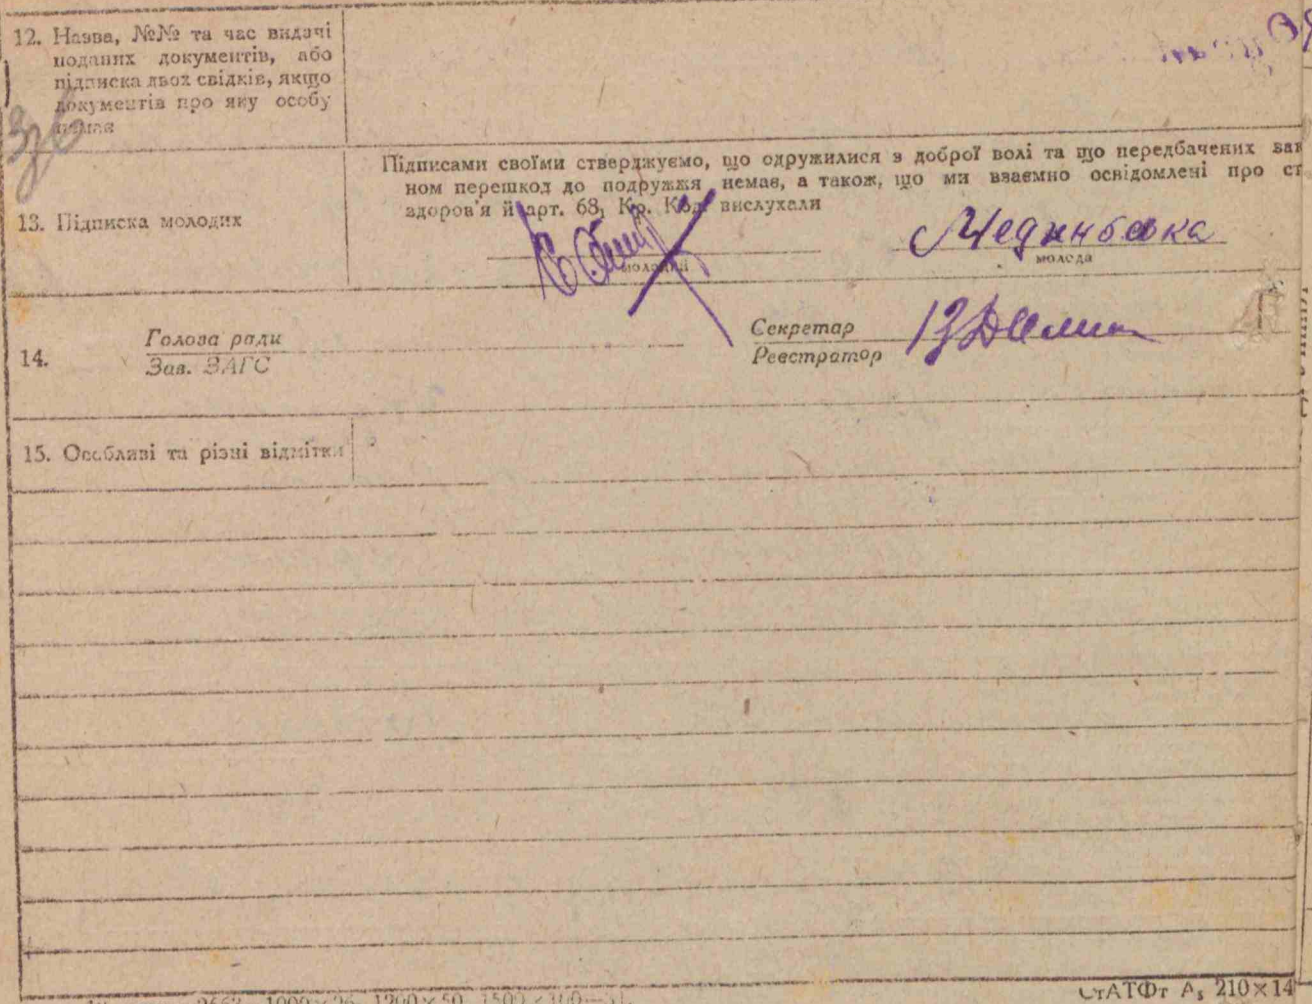 12. Назва, №№ та час видачі
поданих документів, або
підписка двох свідків, якщо
документів про яку особу
немає
Підписами своїми стверджуємо, що одружилися з доброї волі та що передбачених зак
ном перешкод до подружжя немає, а також, що ми взаємно освідомлені про ст
здоров'я й арт. 68, Кр. Код. вислухали
13. Підписка молодих
молодий
молода
14.
Голова ради
Зав. ЗАГС
Секретар
Реєстратор
15. Особливі та різні відмітки
СтАТФт А₅ 210×14